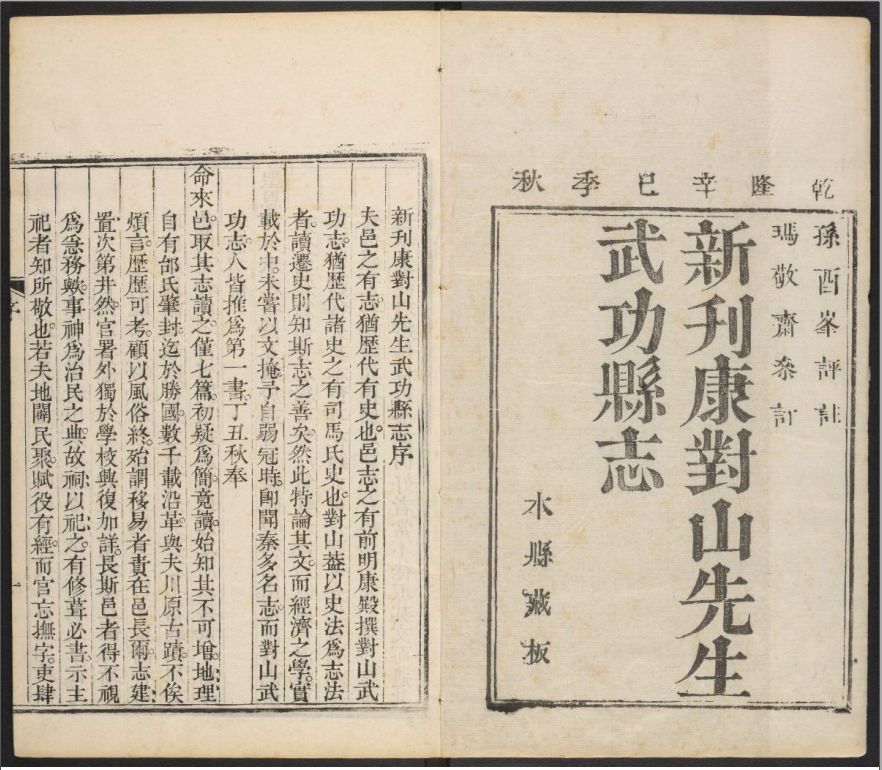 乾隆辛巳季秋
孫酉峯評註
瑪敬齋叅訂
新刊康對山先生
武功縣志
本縣藏板
新刊康對山先生武功縣志序
夫邑之有志猶歷代有史也邑志之有前明康殿撰對山武
功志猶歷代諸史之有司馬氏史也對山葢以史法爲志法
者讀遷史則知斯志之善矣然此特論其文而經濟之學實
載於中未嘗以文掩予自弱冠時卽聞秦多名志而對山武
功志人皆推爲第一書丁丑秋奉
命來邑取其志讀之僅七篇初疑爲簡竟讀始知其不可增地理
自有邰氏肇封迄於勝國數千載沿革與夫川原古蹟不俟
煩言歷歷可考顧以風俗終殆謂移易者責在邑長爾志建
置次第井然官署外獨於學校興復加詳長斯邑者得不視
爲急務歟事神爲治民之典故祠以祀之有修葺必書示主
祀者知所敬也若夫地闢民聚賦役有經而官忘撫字吏肆